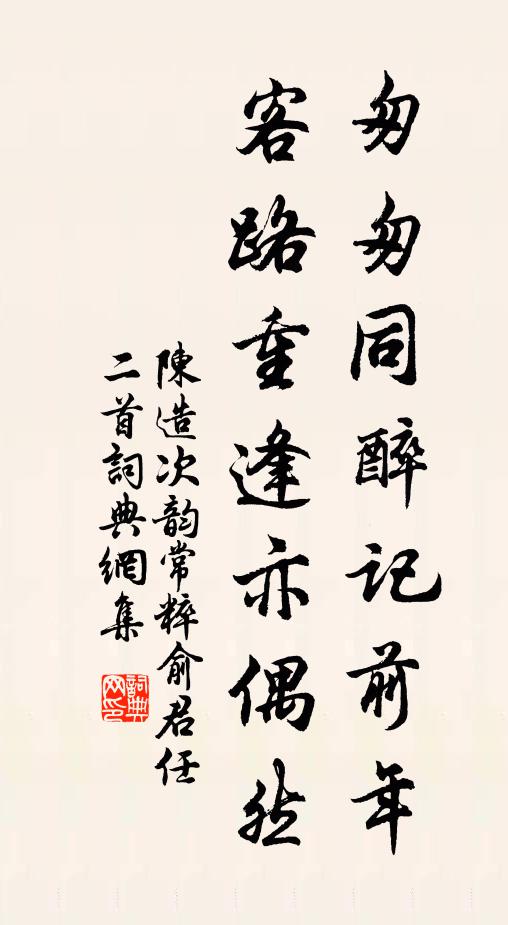 匆匆同醉記前年
客路重逢亦偶然
陳造次韵常粹俞君任
二首詞典網集
詞典
网印